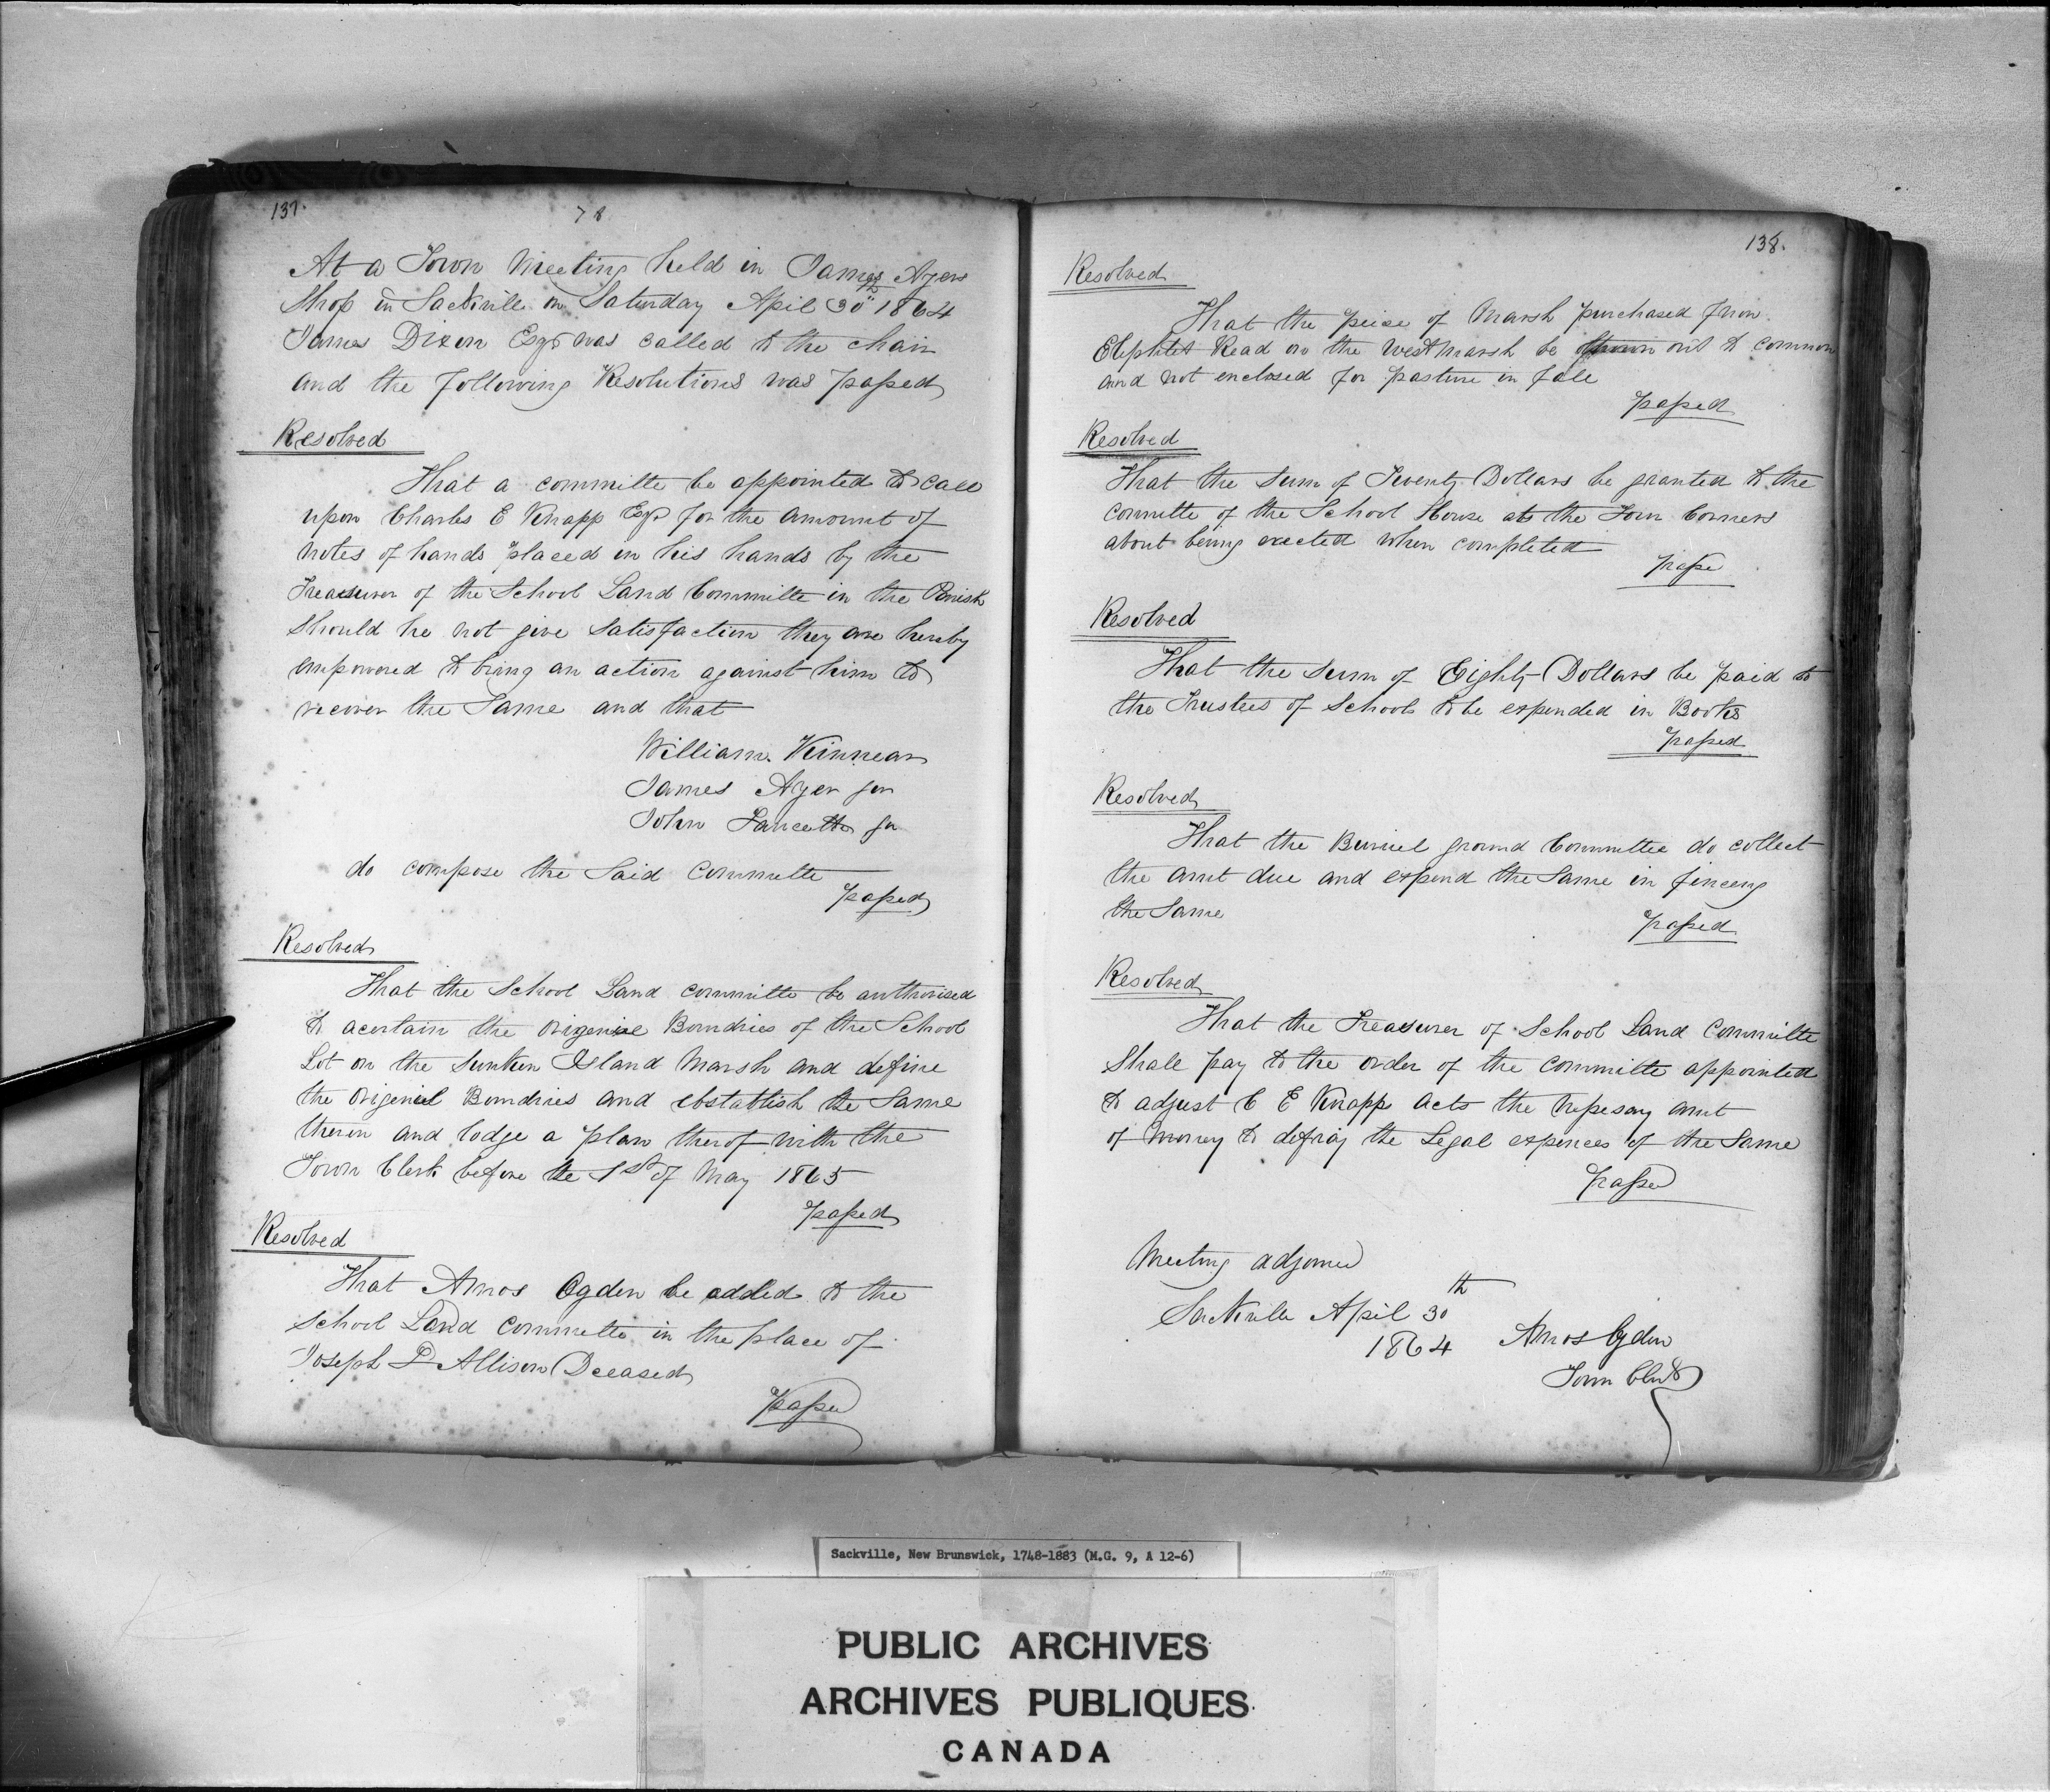 137.
78
At a Town Meeting held in James Ayers
Shop in Sackville on Saturday Apil 30th 1864
James Dixon Esqr was called to the chair
and the following Resolutions was passed
Resolved
That a committe be appointed to call
upon Charles E Knapp Esqr for the amount of
notes of hands placed in his hands by the
Treasurer of the School Land Committe in the Parish
Should he not give Satisfaction they are herby
empowered to bring an action against him to
recover the Same and that
William Kinnear
James Ayer jur
John Fawcett jr
do compose the Said Committe
passed
Resolved
That the School Land committe be authorised
to acertain the origenial Boundries of the School
Lot on the Sunken Island Marsh and define
the origenial Boundries and ebstablish the Same
theron and lodge a plan therof with the
Town Clerk before the 1st of May 1865
passed
Resolved
That Amos Ogden be added to the
School Land Committe in the place of
Joseph Allison Deceased
passed
138.
Resolved
That the peice of Marsh purchased from
Eliphlet Read on the West Marsh be thrown out to common
and not enclosed for pasture in fall
passed
Resolved
That the Sum of Twenty Dollars be granted to the
Committe of the School House at the Four Corners
about being erected when completed
passed
Resolved
That the Sum of Eighty Dollars be paid to
the Trustees of Schools to be expended in Books
passed
Resolved
That the Buriel ground Committee do collect
the amt due and expend the Same in fenceng
the Same
passed
Resolved
That the Treasurer of School Land Committe
Shall pay to the order of the Committe appointed
to adjust C E Knapp acts the nessesary amt
of money to defray the Legal expences of the Same
passed
Meeting adjorned
Sackville Apil 30th
1864
Amos Ogden
Town Clerk
Sackville, New Brunswick, 1748-1883 (M.G. 9, A 12-6)
PUBLIC ARCHIVES
ARCHIVES PUBLIQUES
CANADA